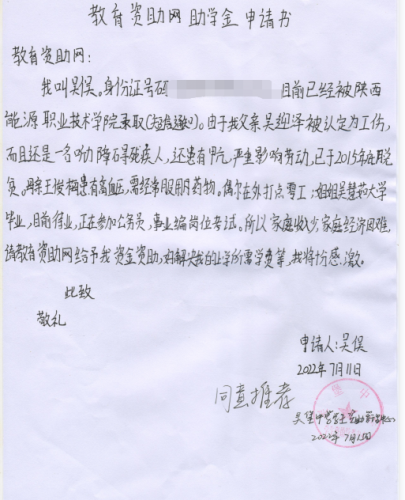 教育资助网助学金申请书
教育资助网：
我叫吴俣。身份证号码 目前已经被陕西
能源职业技术学院录取(短信通知)。由于我父亲吴 泽被认定为工伤，
而且还是一名听力障碍残疾人，还患有 ，严重影响劳动，已于2015年 脱
贫。母亲王 梅患有高血压，需经常服用药物。偶尔在外打点零工；姐姐吴慧 大学
毕业，目前待业，正在参加公务员，事业编岗位考试。所以家庭收少，家庭经济困难，
请教育资助网给予我资金资助，好解决我的上学所需学费等，我将十分感激。
此致
敬礼
申请人：吴俣
2022年7月11日
同意推荐
吴堡中学学生资助
2022年7月15日